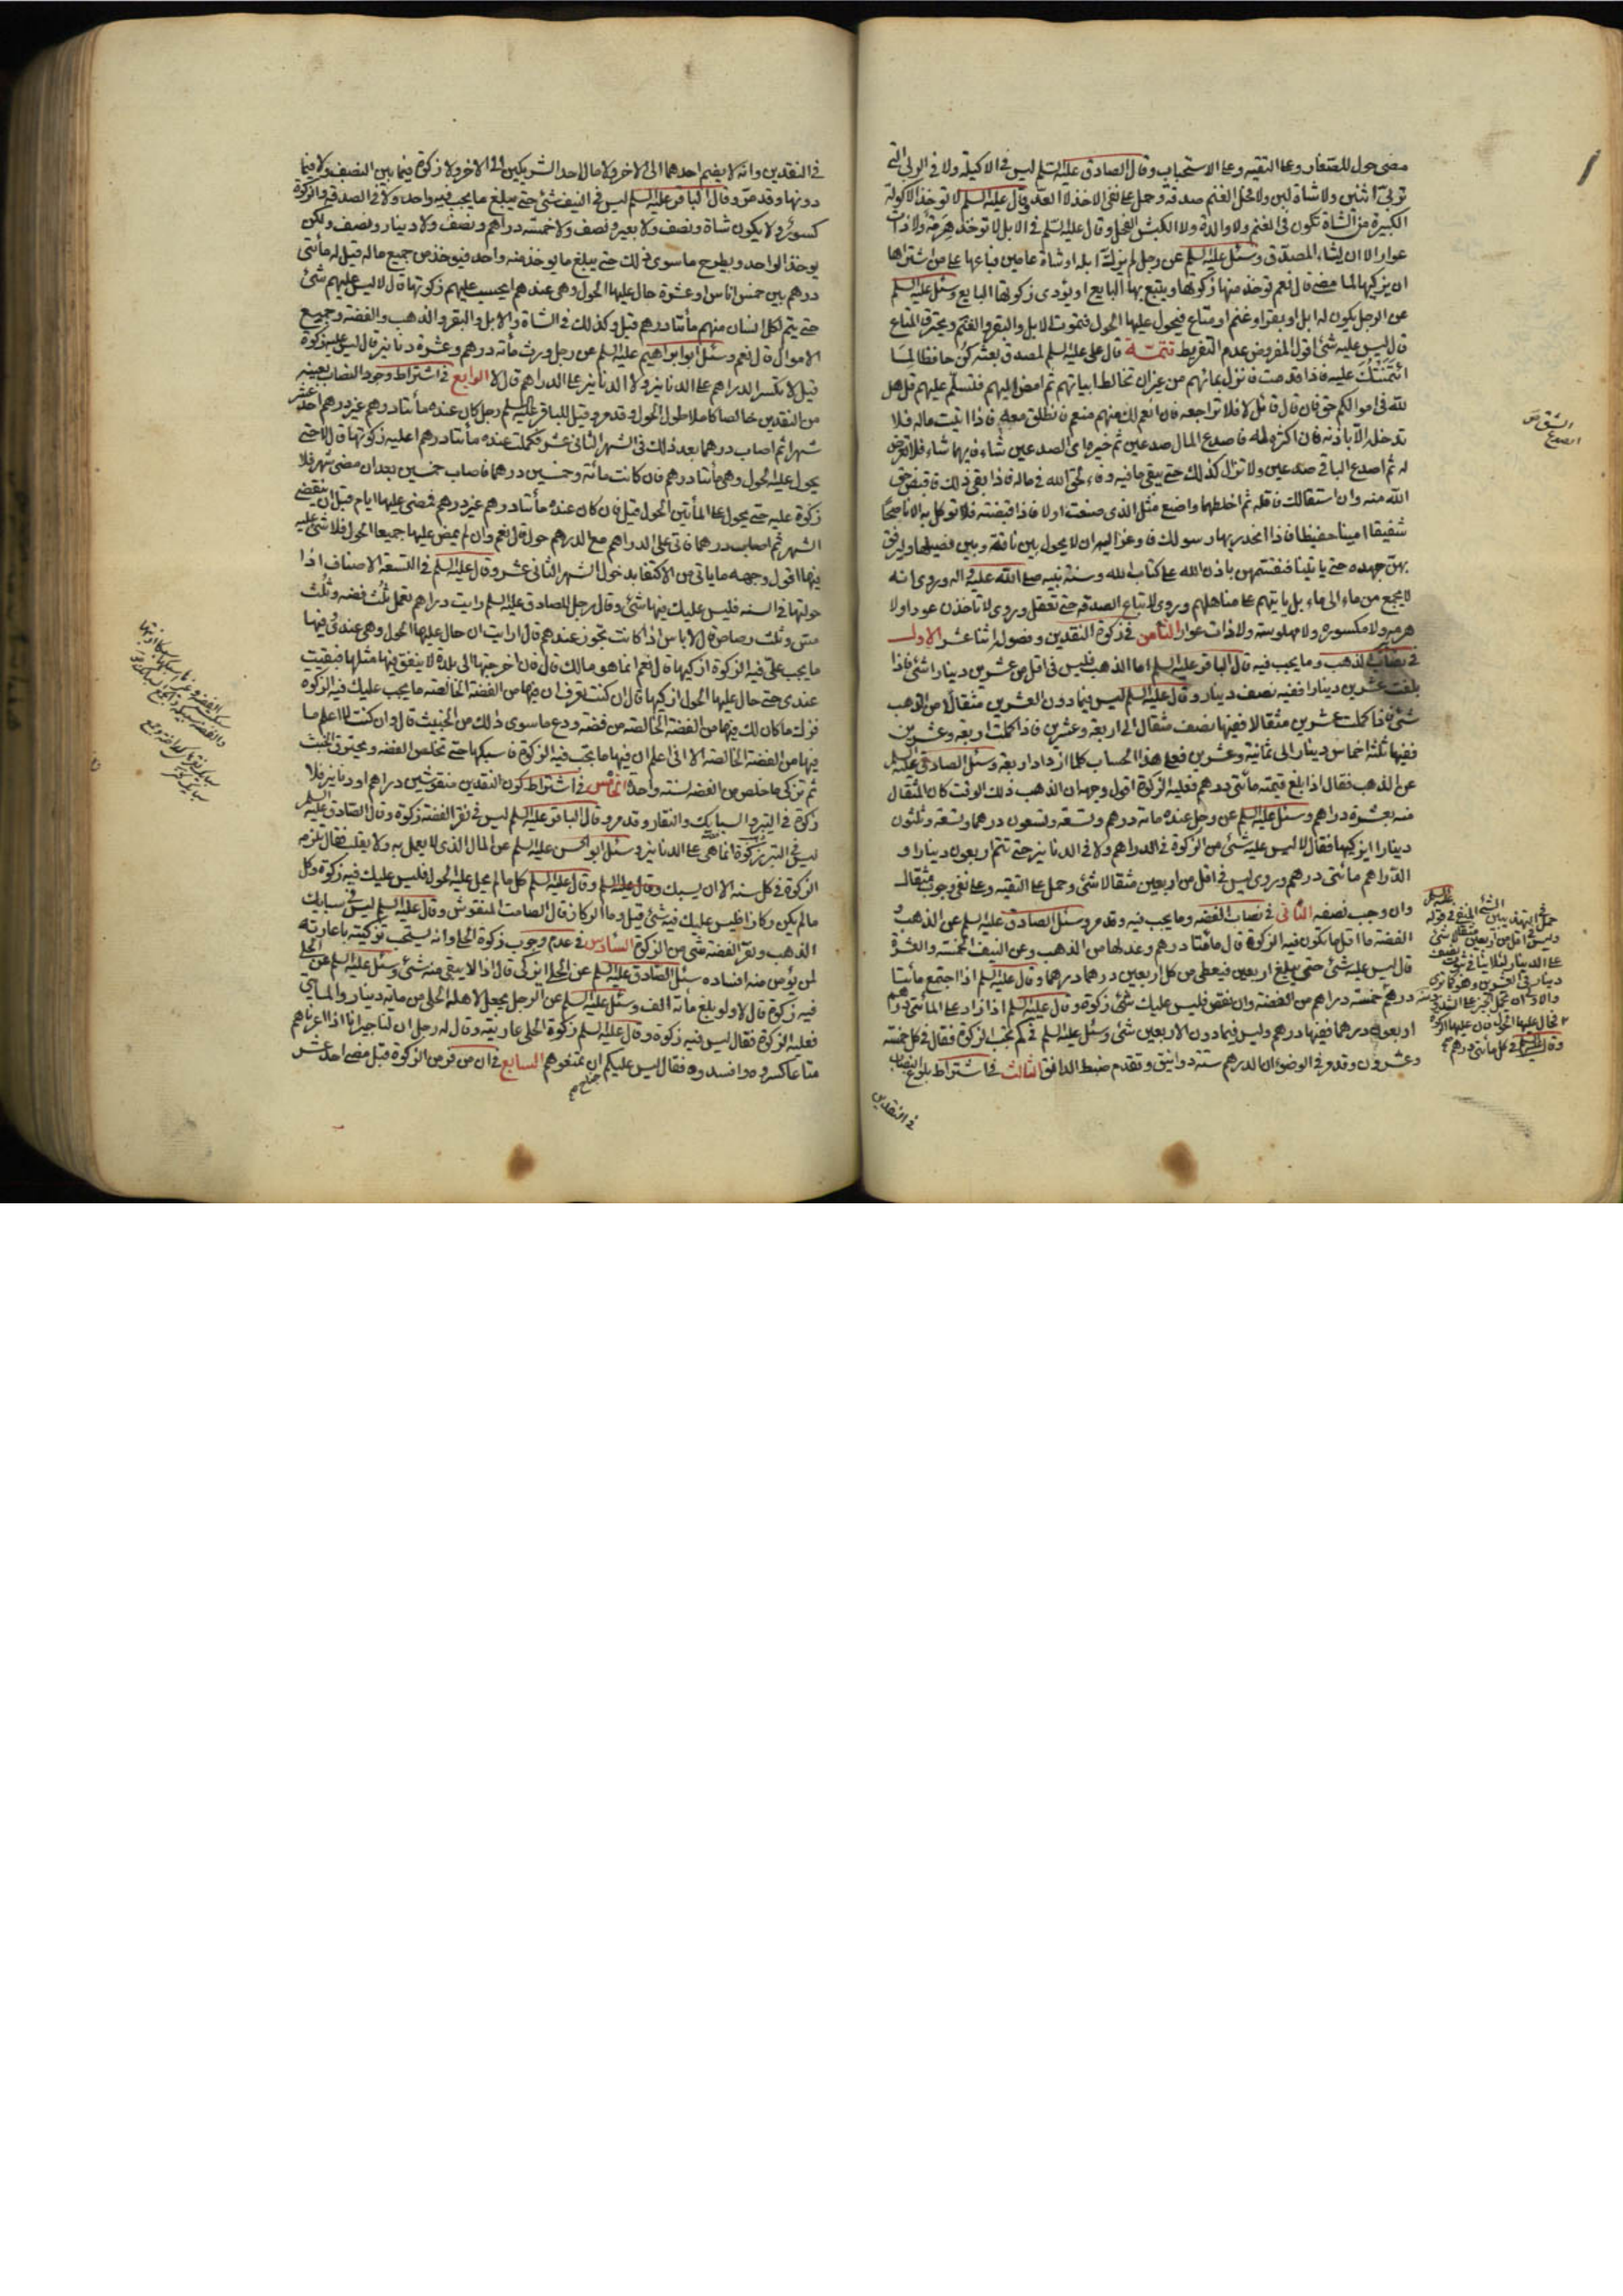 مضى حول للمتعار وعلى التقيه وعلى الاستحباب وقال الصادق عليه السلم ليس في الاكيلة ولا في الربى التي
تربى اثنين ولا شاة لبن ولا فحل الغنم صدقة وحمل على نفي الاخذ لا العد وقال عليه السلم لا توخذ الاكولة
الكبيرة من الشاة تكون في الغنم ولا والدة ولا الكبش الفحل وقال عليه السلم في الابل لا توخذ هرمة ولا ذات
عوار الا ان يشاء المصدق وسئل عليه السلم عن رجل لم يزك ابله او شاة عامين فباعها على من اشتراها
ان يزكيها لما مضى قال نعم توخذ منها زكوتها ويتبع بها البايع او يؤدى زكوتها البايع وسئل عليه السلم
عن الرجل يكون له ابل او بقر او غنم او متاع فيحول عليها الحول فتموت الابل والبقر والغنم ويحترق المتاع
قال ليس عليه شئ اقول المفروض عدم التفريط تتمة قال على عليه السلم لمصدق بعثه كن حافظا لما
ائتمنتك عليه فاذا قدمت فانزل بمائهم من غير ان تخالط ابياتهم ثم امض اليهم فتسلم عليهم قل هل
لله في اموالكم حق فان قال قائل لا فلا تراجعه فان انعم لك منهم منعم فانطلق معه فاذا اتيت ماله فلا
تدخله الا باذنه فان اكثره له فاصدع المال صدعين ثم خيره اى الصدعين شاء فايهما شاء فلا تعرض
له ثم اصدع الباقي صدعين ولا تزال كذلك حتى يبقى ما فيه وفاء لحق الله في ماله فاذا بقى ذلك فاقبض حق
الله منه وان استقالك فاقله ثم اخلطها واصنع مثل الذي صنعت اولا فاذا قبضته فلا توكل به الا ناصحا
شفيقا امينا حفيظا فاذا انحدر بها رسولك فاوعز اليه ان لا يحول بين ناقة وبين فصيلها وليرفق
بهن جهده حتى ياتينا فنقسمهن باذن الله على كتاب الله وسنة نبيه صلى الله عليه واله وروى انه
لا يجمع من ماء الى ماء بل ياتيهم على مناهلهم وروى لا تباع الصدقه حتى تعقل وروى لا تاخذن عودا ولا
هرمه ولا مكسوره ولا مهلوسة ولا ذات عوار الثامن في زكوة النقدين وفصوله اثنا عشر الاول
في نصاب الذهب وما يجب فيه قال الباقر عليه السلم اما الذهب فليس في اقل من عشرين دينارا شئ فاذا
بلغت عشرين دينارا ففيه نصف دينار وقال عليه السلم ليس فيما دون العشرين مثقالا من الذهب
شئ فاذا كملت عشرين مثقالا ففيها نصف مثقال الى اربعة وعشرين فاذا كملت اربعة وعشرين
ففيها ثلثة اخماس دينار الى ثمانية وعشرين فعلى هذا الحساب كلما ازداد اربعة وسئل الصادق عليه السلم
عن الذهب فقال اذا بلغ قيمته مأتى درهم فعليه الزكوة اقول وجهه ان الذهب ذلك الوقت كان المثقال
منه بعشرة دراهم وسئل عليه السلم عن رجل عنده مائة درهم وتسعة وتسعون درهما وتسعة وثلثون
دينارا ايزكيها فقال لا ليس عليه شئ من الزكوة في الدراهم ولا في الدنانير حتى تتم اربعون دينارا و
الدراهم مائتى درهم وروى ليس في اقل من اربعين مثقالا شئ وحمل على التقيه وعلى نفي وجوب مثقال
وان وجب نصفه الثاني في نصاب الفضه وما يجب فيه وقد مر وسئل الصادق عليه السلم عن الذهب و
الفضة ما اقل ما تكون فيه الزكوة قال مائتا درهم وعدلها من الذهب وعن النيف الخمسة والعشرة
قال ليس عليه شئ حتى يبلغ اربعين فيعطى من كل اربعين درهما درهما وقال عليه السلم اذا اجتمع مأيتا
درهم خمسة دراهم من الفضة وان نقص فليس عليك شئ زكوة وقال عليه السلم اذا زاد على المأتى درهم
اربعون درهما ففيها درهم وليس فيما دون الاربعين شئ وسئل عليه السلم في كم تجب الزكوة فقال في كل خمسة
وعشرون وقد مر في الوضوء ان الدرهم ستة دوانيق وتقدم ضبط الدانق الثالث في اشتراط بلوغ النصاب
في النقدين
الشق ص
الصدع
في النقدين وانه لا يضم احدهما الى الاخر ولا مال احد الشريكين الى الاخر ولا زكوة فيما بين النصف ولا فيما
دونها وقد مر وقال الباقر عليه السلم ليس في النيف شئ حتى يبلغ ما يجب فيه واحد ولا في الصدقه والزكوة
كسور ولا يكون شاة ونصف ولا بعير ونصف ولا خمسة دراهم ونصف ولا دينار ونصف ولكن
يوخذ الواحد ويطرح ما سوى ذلك حتى يبلغ ما يوخذ منه واحد فيوخذ من جميع ماله قيل له مأتى
درهم بين خمس اناس او عشرة حال عليها الحول وهي عندهم ايجب عليهم زكوتها قال لا ليس عليهم شئ
حتى يتم لكل انسان منهم مأتا درهم قيل وكذلك في الشاة والابل والبقر والذهب والفضة وجميع
الاموال قال نعم وسئل ابو ابراهيم عليه السلم عن رجل ورث مأئة درهم وعشرة دنانير قال ليس عليه زكوة
قيل لا تكسر الدراهم على الدنانير ولا الدنانير على الدراهم قال لا الرابع في اشتراط وجود النصاب بعينه
من النقدين خالصا كاملا طول الحول وقد مر وقيل للباقر عليه السلم رجل كان عنده مأتا درهم غير درهم احد عشر
شهرا ثم اصاب درهما بعد ذلك في الشهر الثاني عشر فكملت عنده مأتا درهم اعليه زكوتها قال لا حتى
يحول عليه الحول وهي مأتا درهم فان كانت مائة وخمسين درهما فاصاب خمسين بعد ان مضى شهر فلا
زكوة عليه حتى يحول على المأتين الحول قيل فان كان عنده مأتا درهم غير درهم فمضى عليها ايام قبل ان ينقضي
الشهر ثم اصاب درهما فاتى على الدراهم مع الدرهم حول قال نعم وان لم يمض عليها جميعا الحول فلا شئ عليه
فيها اقول وجهه ما ياتي من الاكتفا بدخول الشهر الثاني عشر وقال عليه السلم في التسعة الاصناف اذا
حولتها في السنه فليس عليك فيها شئ وقال رجل للصادق عليه السلم رايت دراهم تعمل ثلث فضه وثلث
مس وثلث رصاص قال لا باس اذا كانت تجوز عندهم قال ارايت ان حال عليها الحول وهي عندي فيها
ما يجب علي فيه الزكوة ازكيها قال نعم انما هو مالك قال فان اخرجتها الى بلدة لا ينفق فيها مثلها فبقيت
عندي حتى حال عليها الحول ازكيها قال ان كنت تعرف ان فيها من الفضة الخالصه ما يجب عليك فيه الزكوه
فزك ما كان لك فيها من الفضة الخالصه من فضه ودع ما سوى ذلك من الخبيث قال وان كنت لا اعلم ما
فيها من الفضة الخالصة الا اني اعلم ان فيها ما يجب فيه الزكوة فاسبكها حتى تخلص الفضه ويحترق الخبث
ثم تزكى ما خلص من الفضه لسنة واحدة الخامس في اشتراط كون النقدين منقوشين دراهم او دنانير فلا
زكوة في التبر والسبايك والنقار وقد مر وقال الباقر عليه السلم ليس في نقر الفضة زكوة وقال الصادق عليه السلم
ليس في التبر زكوة انما هي على الدنانير وسئل ابو الحسن عليه السلم عن المال الذي لا يعمل به ولا يقلب فقال تلزمه
الزكوة في كل سنه الا ان يسبك وقال عليه السلم كل ما لم يحل عليه الحول فليس عليك فيه زكوة وكل
ما لم يكن ركازا فليس عليك فيه شئ قيل وما الركاز قال الصامت المنقوش وقال عليه السلم ليس في سبايك
الذهب ونقر الفضة شئ من الزكوة السادس في عدم وجوب زكوة الحلى وانه يستحب تزكيته باعارته
لمن يؤمن منه افساده سئل الصادق عليه السلم عن الحلى ايزكى قال اذا لا يبقى منه شئ وسئل عليه السلم عن الحلى
فيه زكوة قال لا ولو بلغ مأئة الف وسئل عليه السلم عن الرجل يجعل لاهله الحلى من مائة دينار والمأتي
فعليه الزكوة فقال ليس فيه زكوة وقال عليه السلم زكوة الحلى عاريته وقال له رجل ان لنا جيرانا اذا اعرناهم
متاعا كسروه وافسدوه فقال ليس عليكم ان تمنعوهم السابع في ان من فر من الزكوة قبل مضى احد عشر